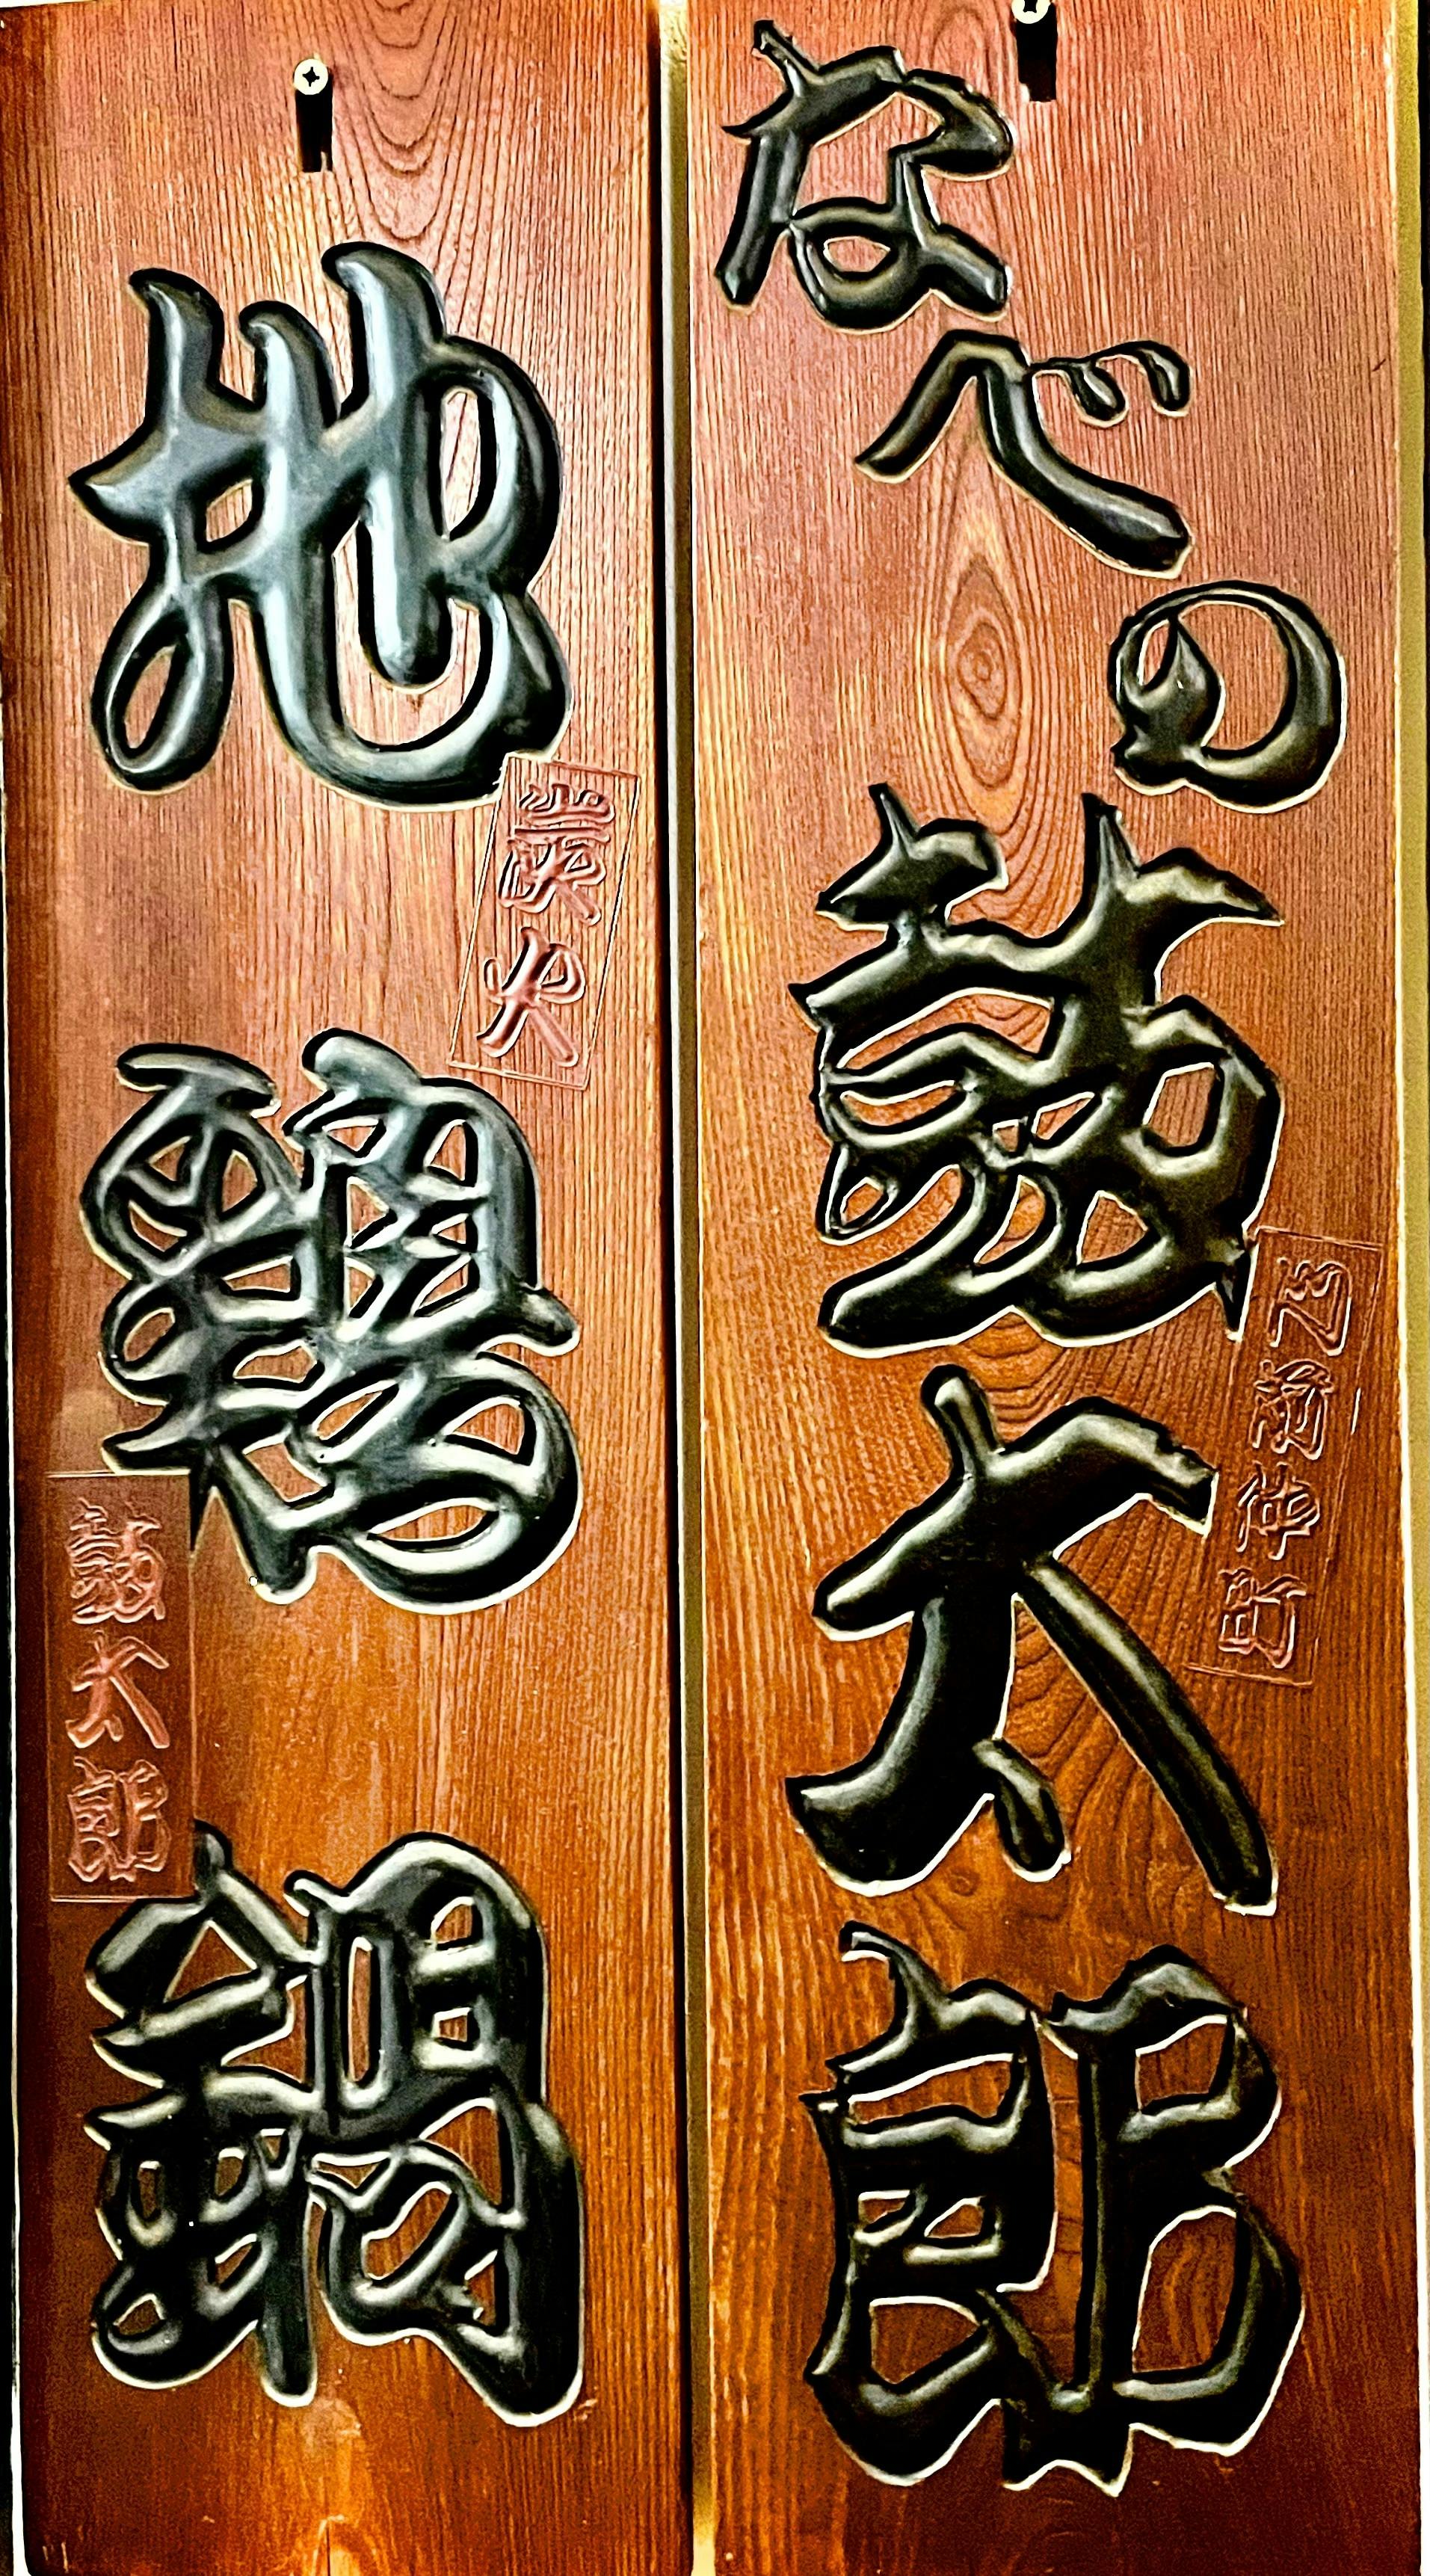 なべの鼓太郎
地鶏鍋
炭火
鼓太郎